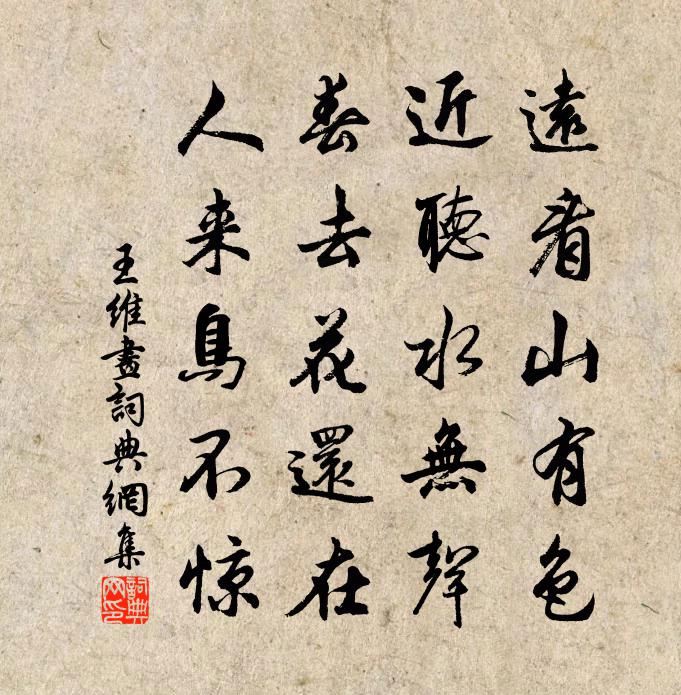 遠看山有色
近聽水無聲
春去花還在
人来鳥不惊
王維畫詞典網集
詞典網印